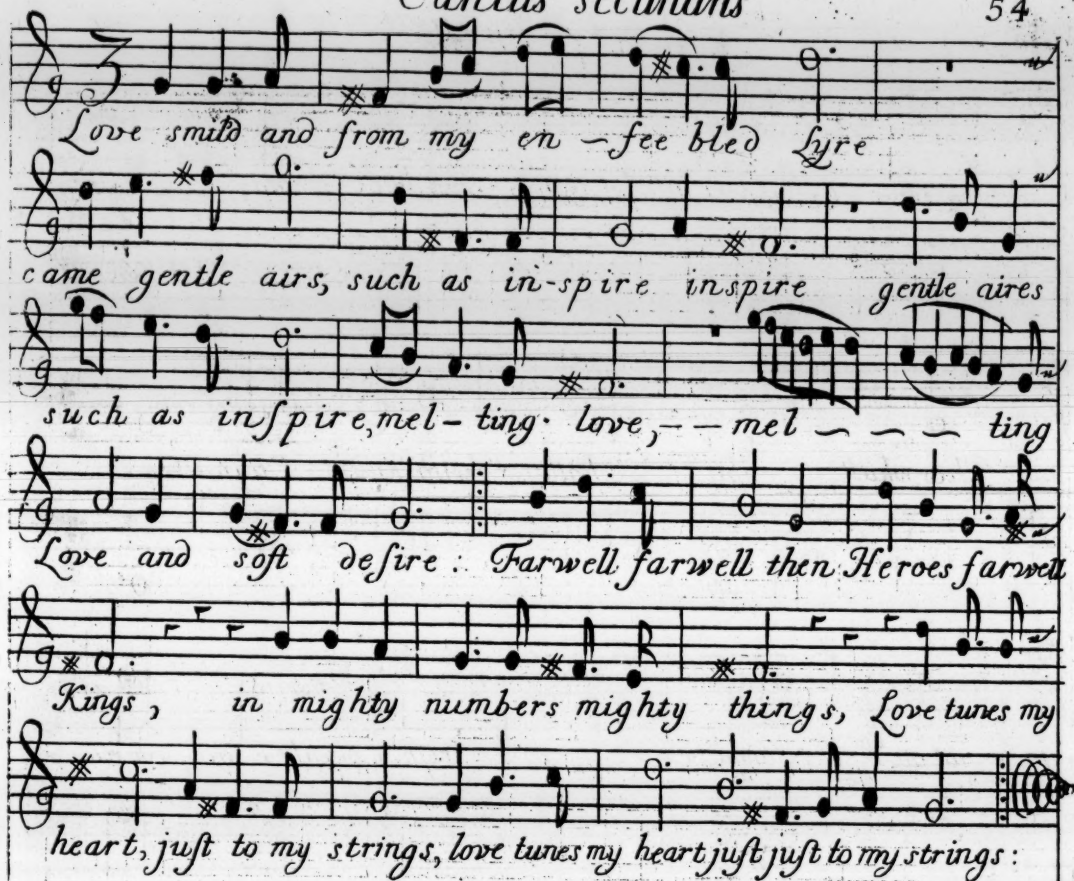 Cantus secundus 54
Love smil'd and from my en - fee bled Lyre
came gentle airs, such as in-spire inspire gentle aires
such as inſpire, mel- ting. love, -- mel ~ ~ ~ ting
Love and soft deſire : Farwell farwell then Heroes farwell
Kings, in mighty numbers mighty things, Love tunes my
heart, juſt to my strings, love tunes my heart juſt juſt to my strings :